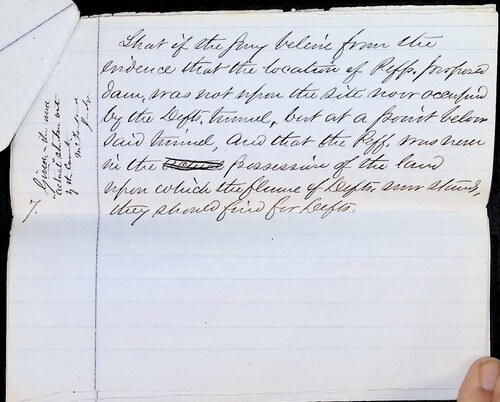 That if the jury believe from the
evidence that the location of Peffs. proposed
dam, was not upon the site now occupied
by the Defts. tunnel, but at a point below
said tunnel, and that the Peff. was never
in the possession of the land
upon which the flume of Defts. now stands,
they should find for Defts.
7.
Given - the word
"actual" stricken out
by the Court.